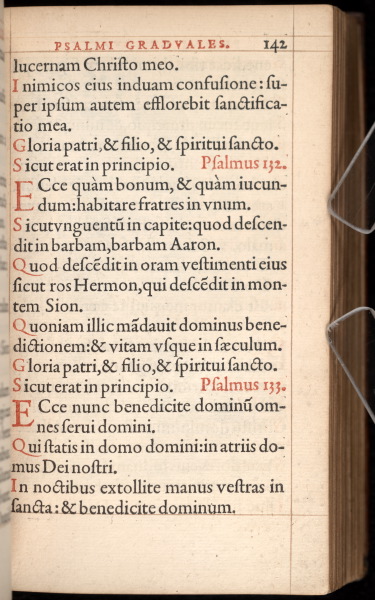 PSALMI GRADVALES. 142
lucernam Chriſto meo.
Inimicos eius induam confuſione: ſu-
per ipſum autem efflorebit ſanctifica-
tio mea.
Gloria patri, & filio, & ſpiritui ſancto.
Sicut erat in principio. Pſalmus 132.
ECce quàm bonum, & quàm iucun-
dum: habitare fratres in vnum.
Sicut vnguentū in capite: quod deſcen-
dit in barbam, barbam Aaron.
Quod deſcēdit in oram veſtimenti eius
ſicut ros Hermon, qui deſcēdit in mon-
tem Sion.
Quoniam illic mādauit dominus bene-
dictionem: & vitam vſque in ſæculum.
Gloria patri, & filio, & ſpiritui ſancto.
Sicut erat in principio. Pſalmus 133.
ECce nunc benedicite dominū om-
nes ſerui domini.
Qui ſtatis in domo domini: in atriis do-
mus Dei noſtri.
In noctibus extollite manus veſtras in
ſancta: & benedicite dominum.